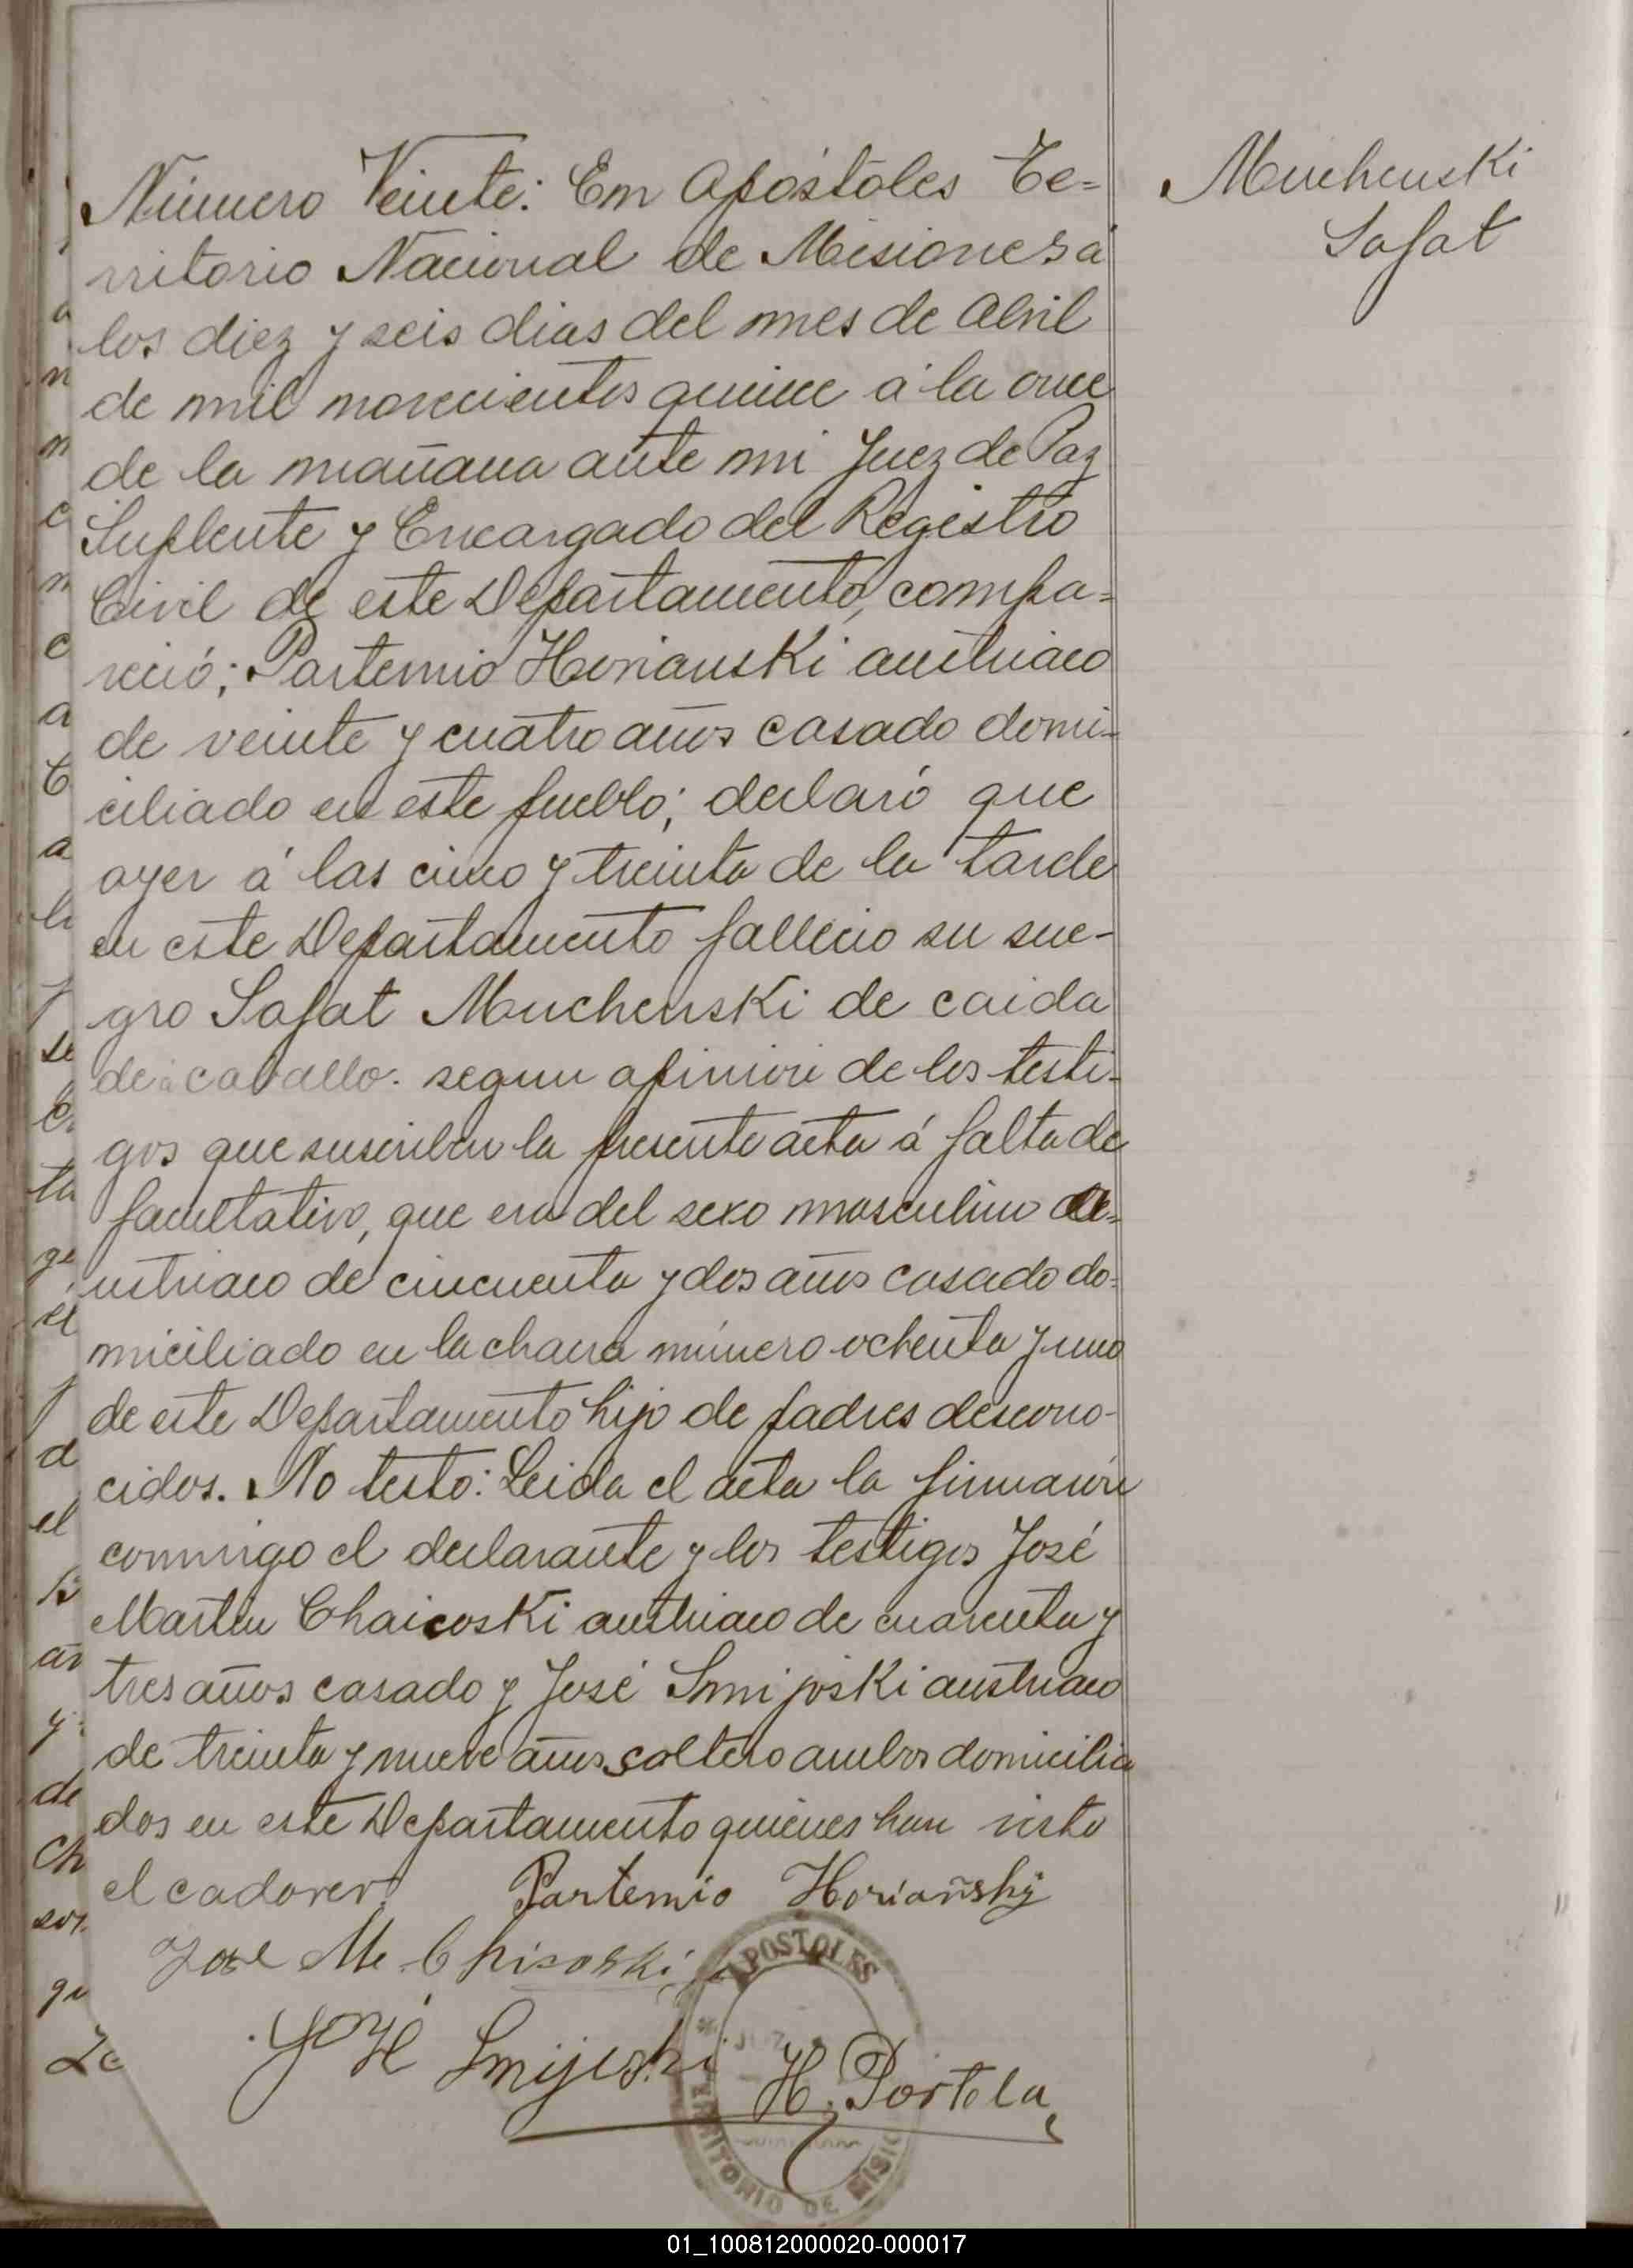 Número Veinte: En Apóstoles Te=
rritorio Nacional de Misiones á
los diez y seis dias del mes de Abril
de mil novecientos quince á la once
de la mañana ante mi Juez de Paz
Suplente y Encargado del Registro
Civil de este Departamento, compa=
reció; Partemio Horianski austriaco
de veinte y cuatro años casado domi-
ciliado en este pueblo; declaró que
ayer á las cinco y treinta de la tarde
en este Departamento fallecio su sue-
gro Safat Muchenski de caida
de caballo. segun opinion de los testi-
gos que suscriben la presente acta á falta de
facultativo, que era del sexo masculino au=
ustriaco de cincuenta y dos años casado do-
miciliado en la chacra número ochenta y uno
de este Departamento hijo de padres descono-
cidos. No testó: Leida el acta la firmaron
conmigo el declarante y los testigos José
Martin Chaicoski austriaco de cuarenta y
tres años casado y José Smijoski austriaco
de treinta y nueve años soltero ambos domicilia
dos en este Departamento quiénes han visto
el cadaver. Partemio Horiañský
Jose M. Chisoski
José Smijeski
H. Portela
Muchenski
Safat
APOSTOLES
TERRITORIO DE MISIO
01_100812000020-000017